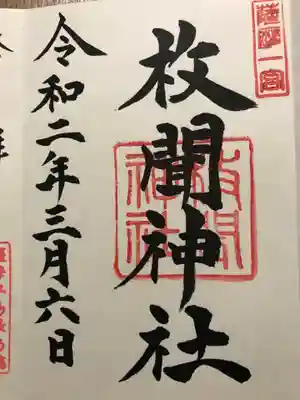 薩摩一宮
枚聞神社
枚聞神社
令和二年三月六日